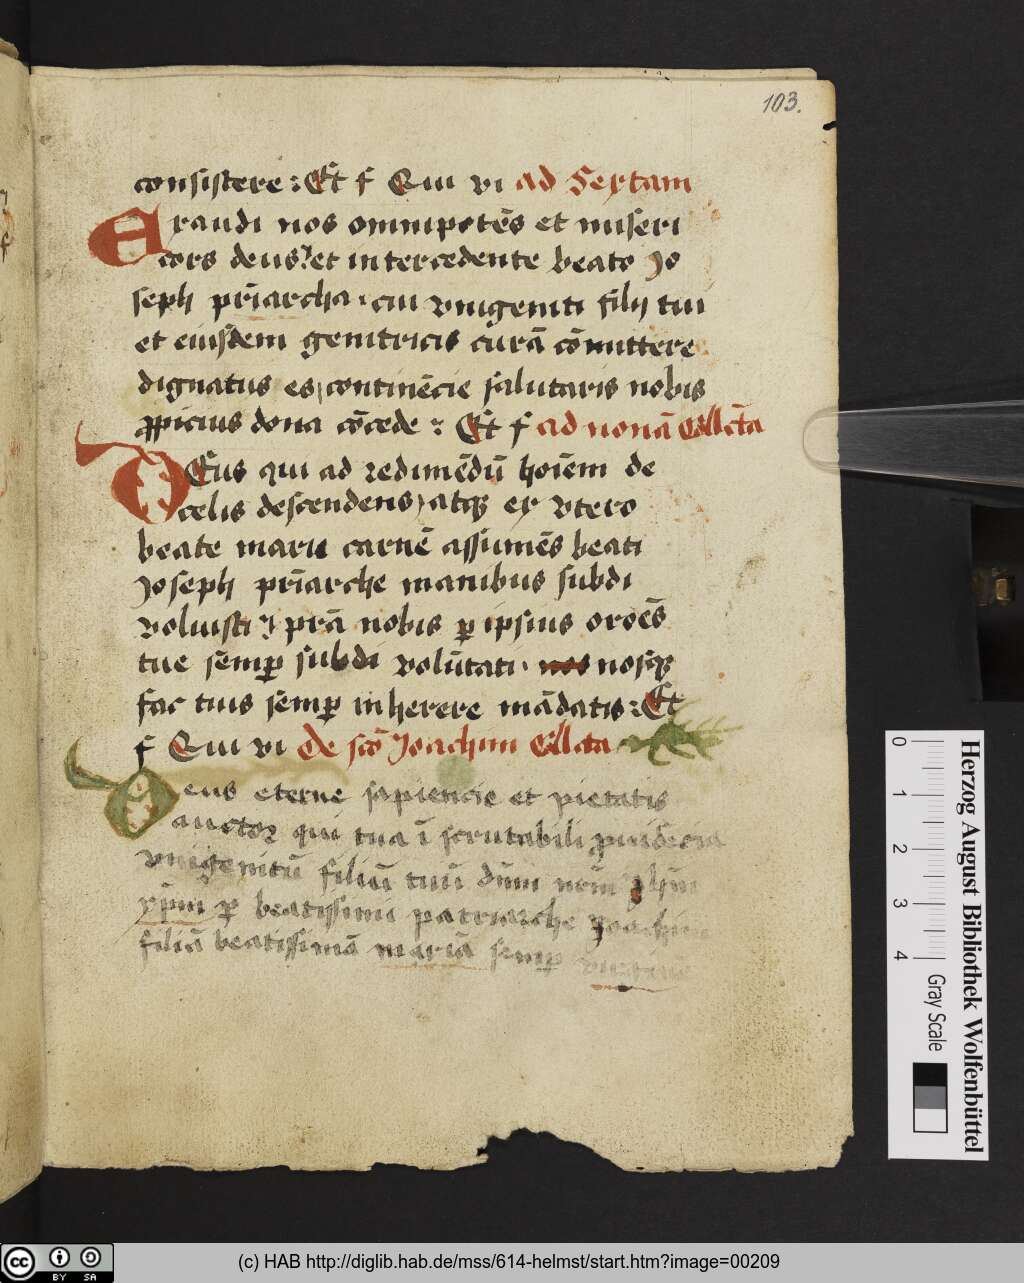 103.
consistere : Et f Qui vi ad Sextam
Exaudi nos omnipotēs et miseri
cors deus? et intercedente beato Jo
seph pr̄iarcha · cui vnigeniti filij tui
et eiusdem genitricis curā cōmittere
dignatus es, continēcie salutaris nobis
ꝓpicius dona cōcede : Et f ad nonā Collcta
DEus qui ad redimēdū hoīem de
celis descendens, atqꝫ ex vtero
beate marie carnē assumēs beati
Joseph pr̄iarche manibus subdi
voluisti prā nobis ꝑ ipsius oroēs
tue semꝑ subdi volūtati · nos nosqꝫ
fac tuis semꝑ inherere mādatis : Et
f Qui vi De scō Joachim Collcta
Deus eterne sapiencie et pietatis
auctor qui tua ī scrutabili
vnigenitū filiū tuū dūm nrm
xp̄m ꝑ beatissimū patriarche
filiā beatissimā mariā semꝑ
0 1 2 3 4
Gray Scale
Herzog August Bibliothek Wolfenbüttel
cc BY SA
(c) HAB http://diglib.hab.de/mss/614-helmst/start.htm?image=00209